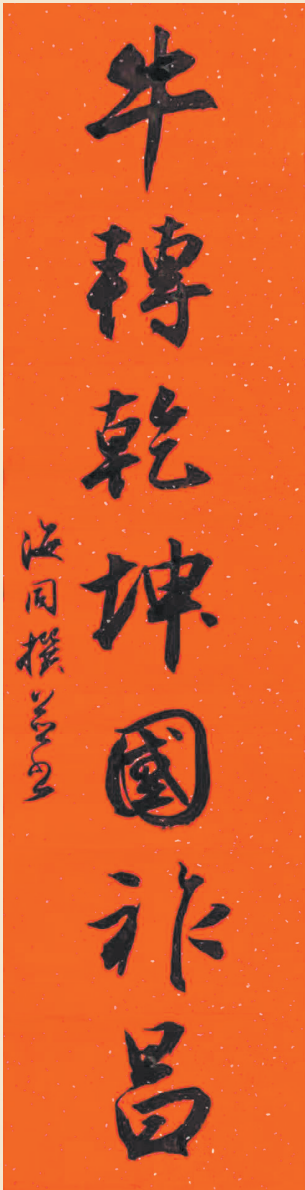 牛轉乾坤國祚昌
海同撰並書